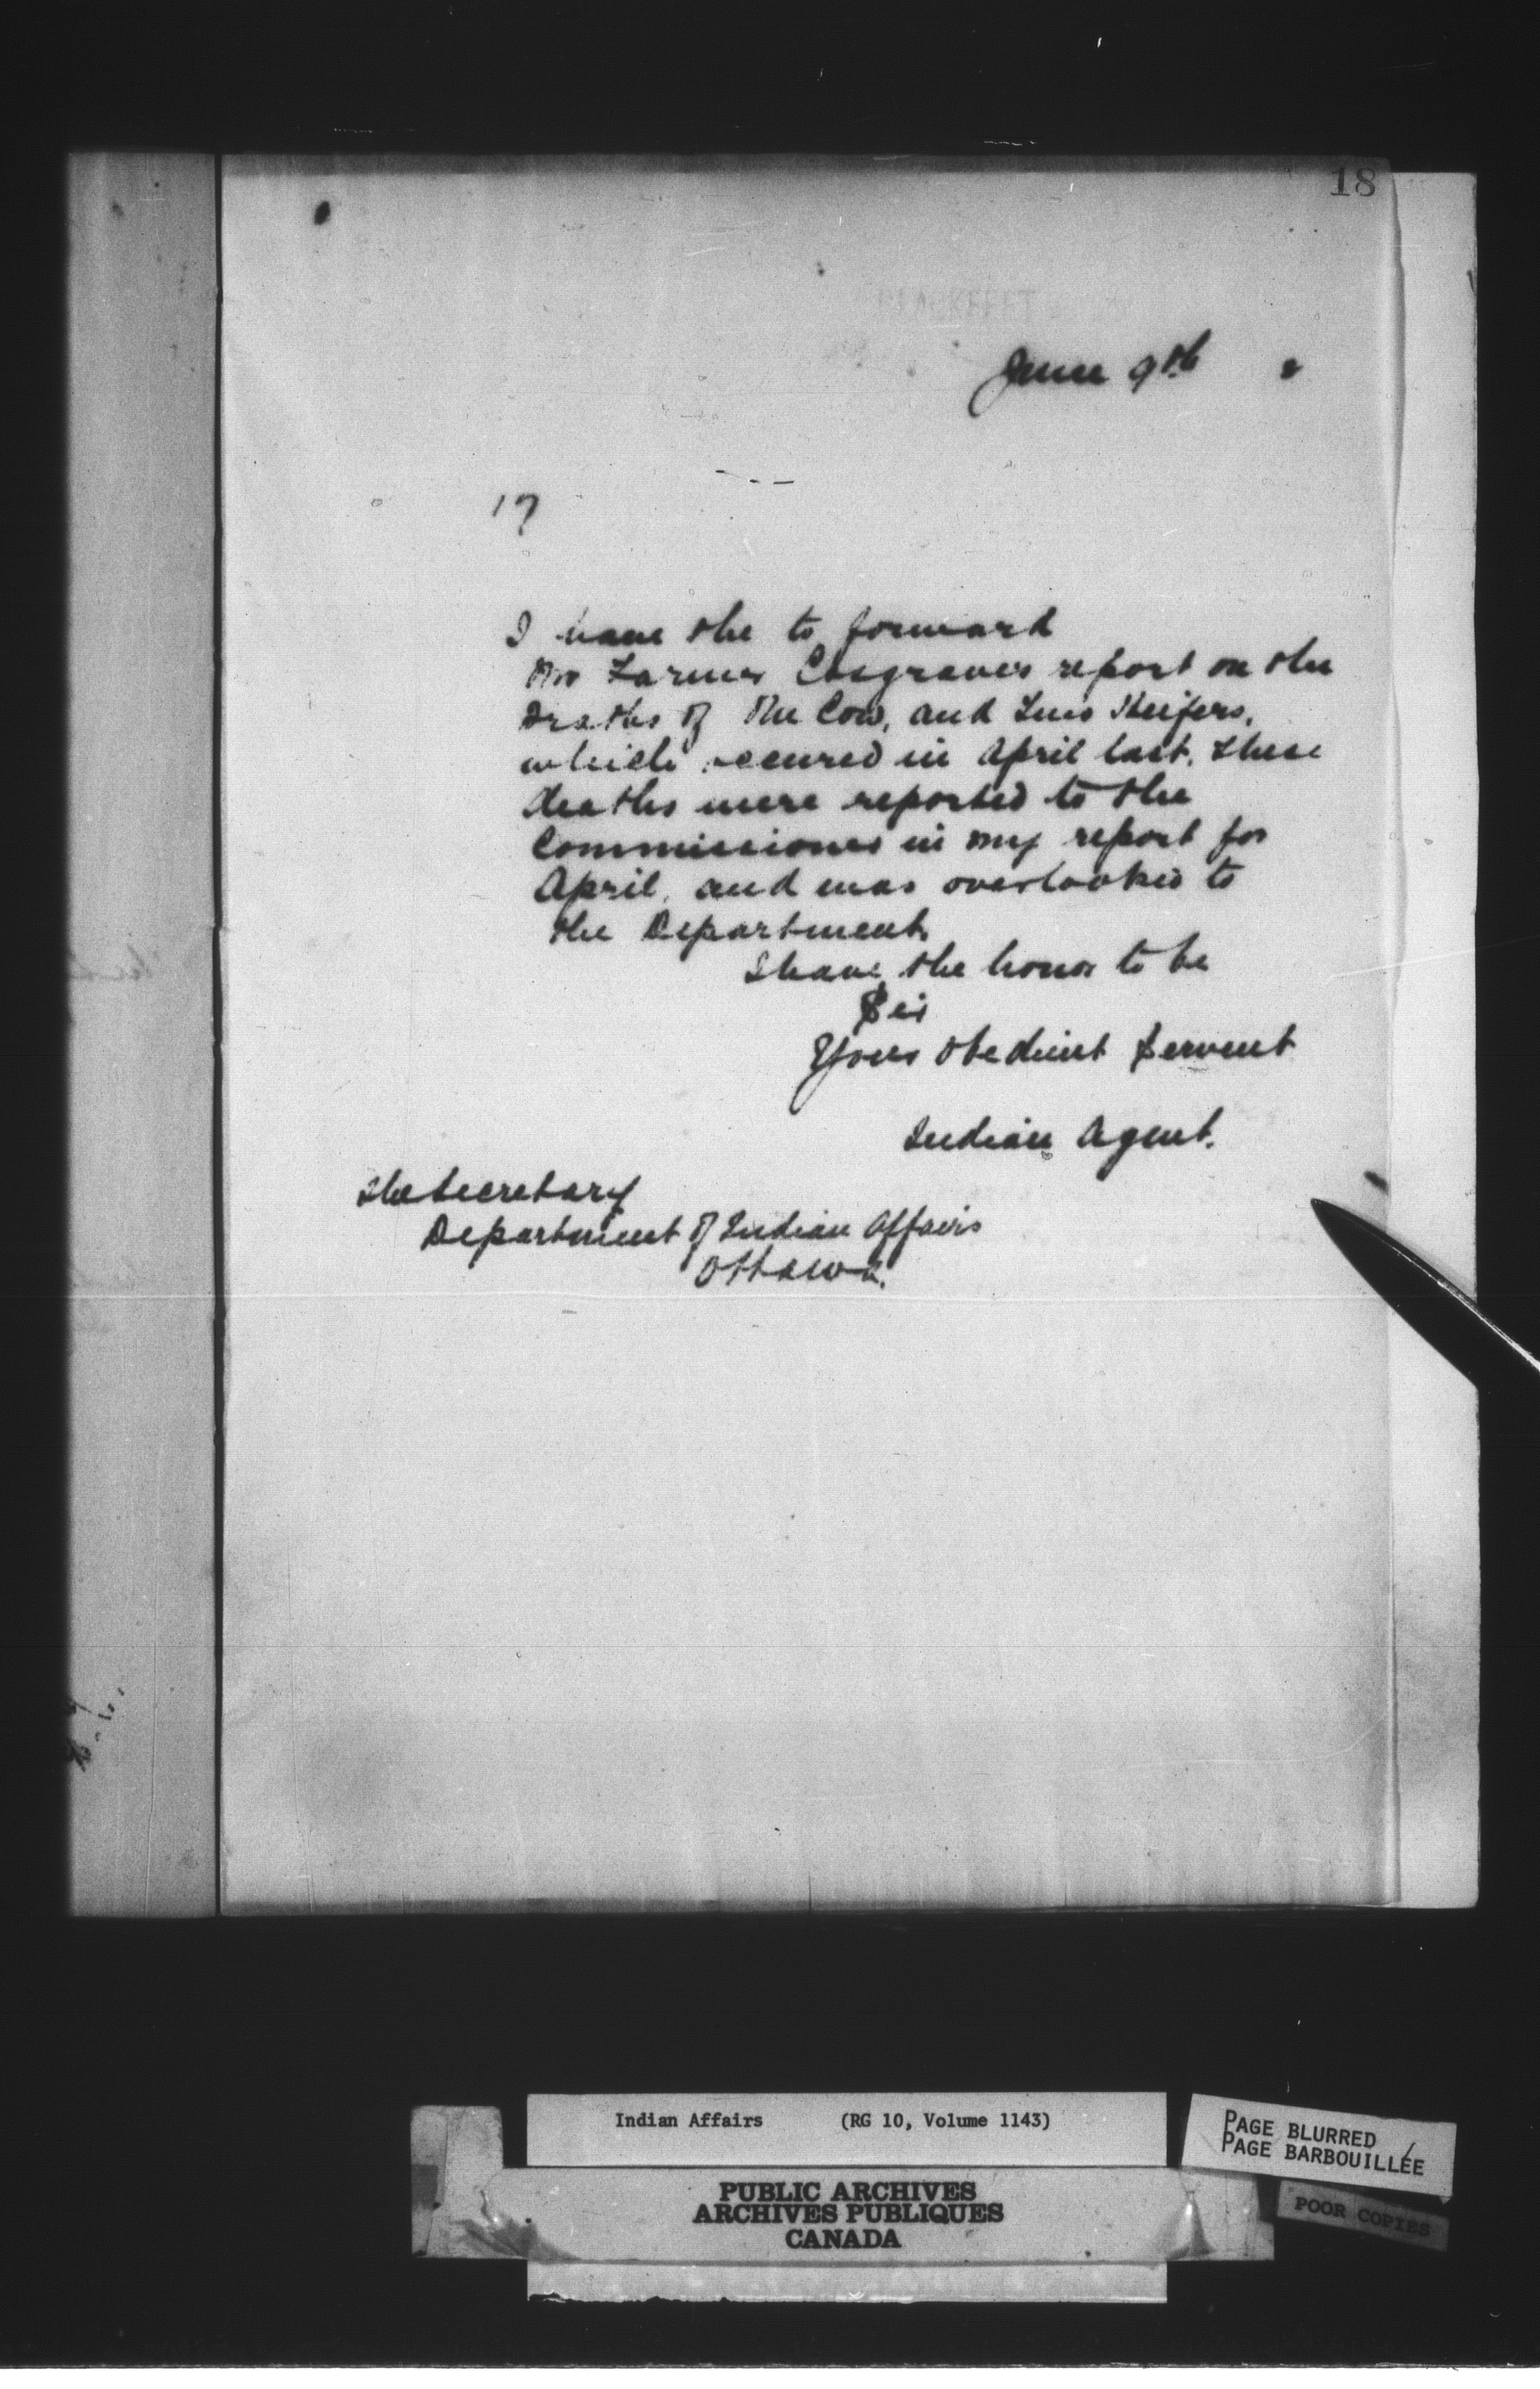 18
BLACKFEET
June 9th
17
I have the to forward
Mr Farmer Cosgraves report on the
Deaths of One Cow, and Two Heifers,
which occured in April last. These
deaths were reported to the
Commissioner in my report for
April, and was overlooked to
the Department.
I have the honor to be
Sir
Your Obedient Servent
Indian Agent.
The Secretary
Department of Indian Affairs
Ottawa.
Indian Affairs (RG 10, Volume 1143)
PUBLIC ARCHIVES
ARCHIVES PUBLIQUES
CANADA
PAGE BLURRED
PAGE BARBOUILLÉE
POOR COPIES